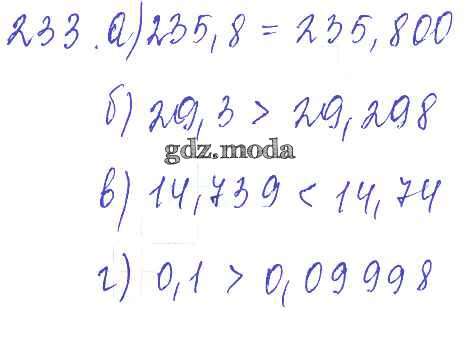 233. а) 235,8 = 235,800
б) 29,3 > 29,298
gdz.moda
в) 14,739 < 14,74
г) 0,1 > 0,09998